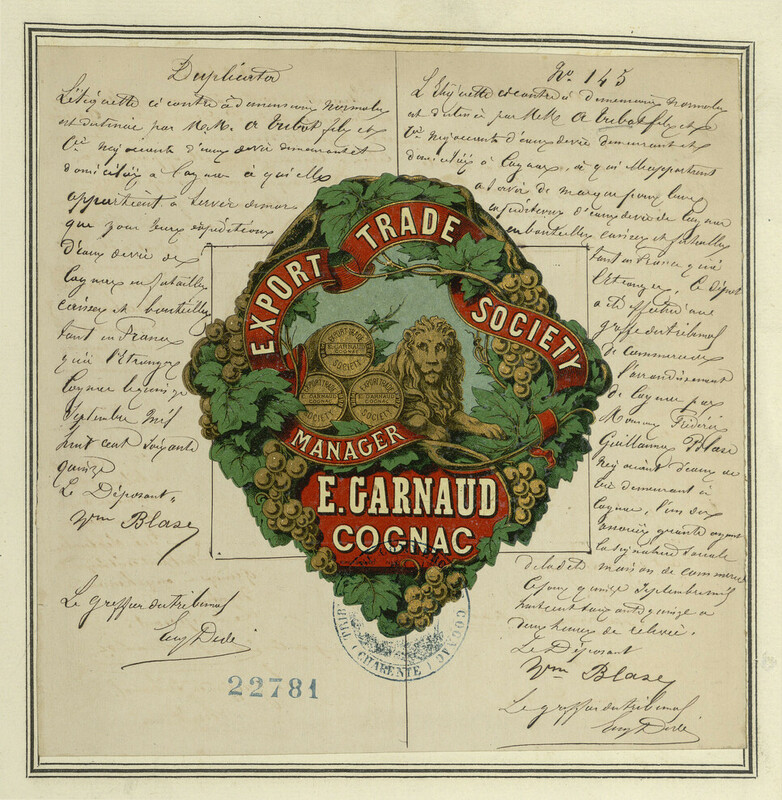 Duplicata
L'étiquette ci contre à dimensions normales
est destinée par M.M. A Tribot fils et
Cie Négociants d'eaux de vie demeurant et
domiciliés à Cognac à qui elle
appartient à servir de mar
que pour leurs expéditions
d'eaux de vie de
Cognac en futailles
caisses et bouteilles
tant en France
qu'à l'Etranger
Cognac le quinze
Septembre mil
huit cent soixante
quinze
Le Déposant
Wm Blase
Le greffier du tribunal
No. 145
L'étiquette ci contre à dimensions normales
est destinée par M.M. A Tribot fils et
Cie Négociants d'eaux de vie demeurant et
domiciliés à Cognac, à qui elle appartient
à servir de marque pour leurs
expéditions d'eaux de vie de Cognac
en bouteilles caisses et futailles
tant en France qu'à
l'Etranger, le dépôt
a été effectué au
greffe du tribunal
de commerce de
l'arrondissement
de Cognac par
Monsieur Frédéric
Guillaume Blase
Négociant d'eaux de
vie demeurant à
Cognac, l'un des
associés gérants ayant
la signature sociale
de la dite maison de commerce
Ce jour quinze Septembre mil
huit cent soixante quinze à
deux heures de relevée.
Le Déposant
Wm Blase
Le greffier du tribunal
EXPORT TRADE SOCIETY
EXPORT TRADE
E. GARNAUD
COGNAC
SOCIETY
EXPORT TRADE
E. GARNAUD
COGNAC
SOCIETY
EXPORT TRADE
E. GARNAUD
COGNAC
SOCIETY
MANAGER
E. GARNAUD
COGNAC
COGNAC (CHARENTE)
22781